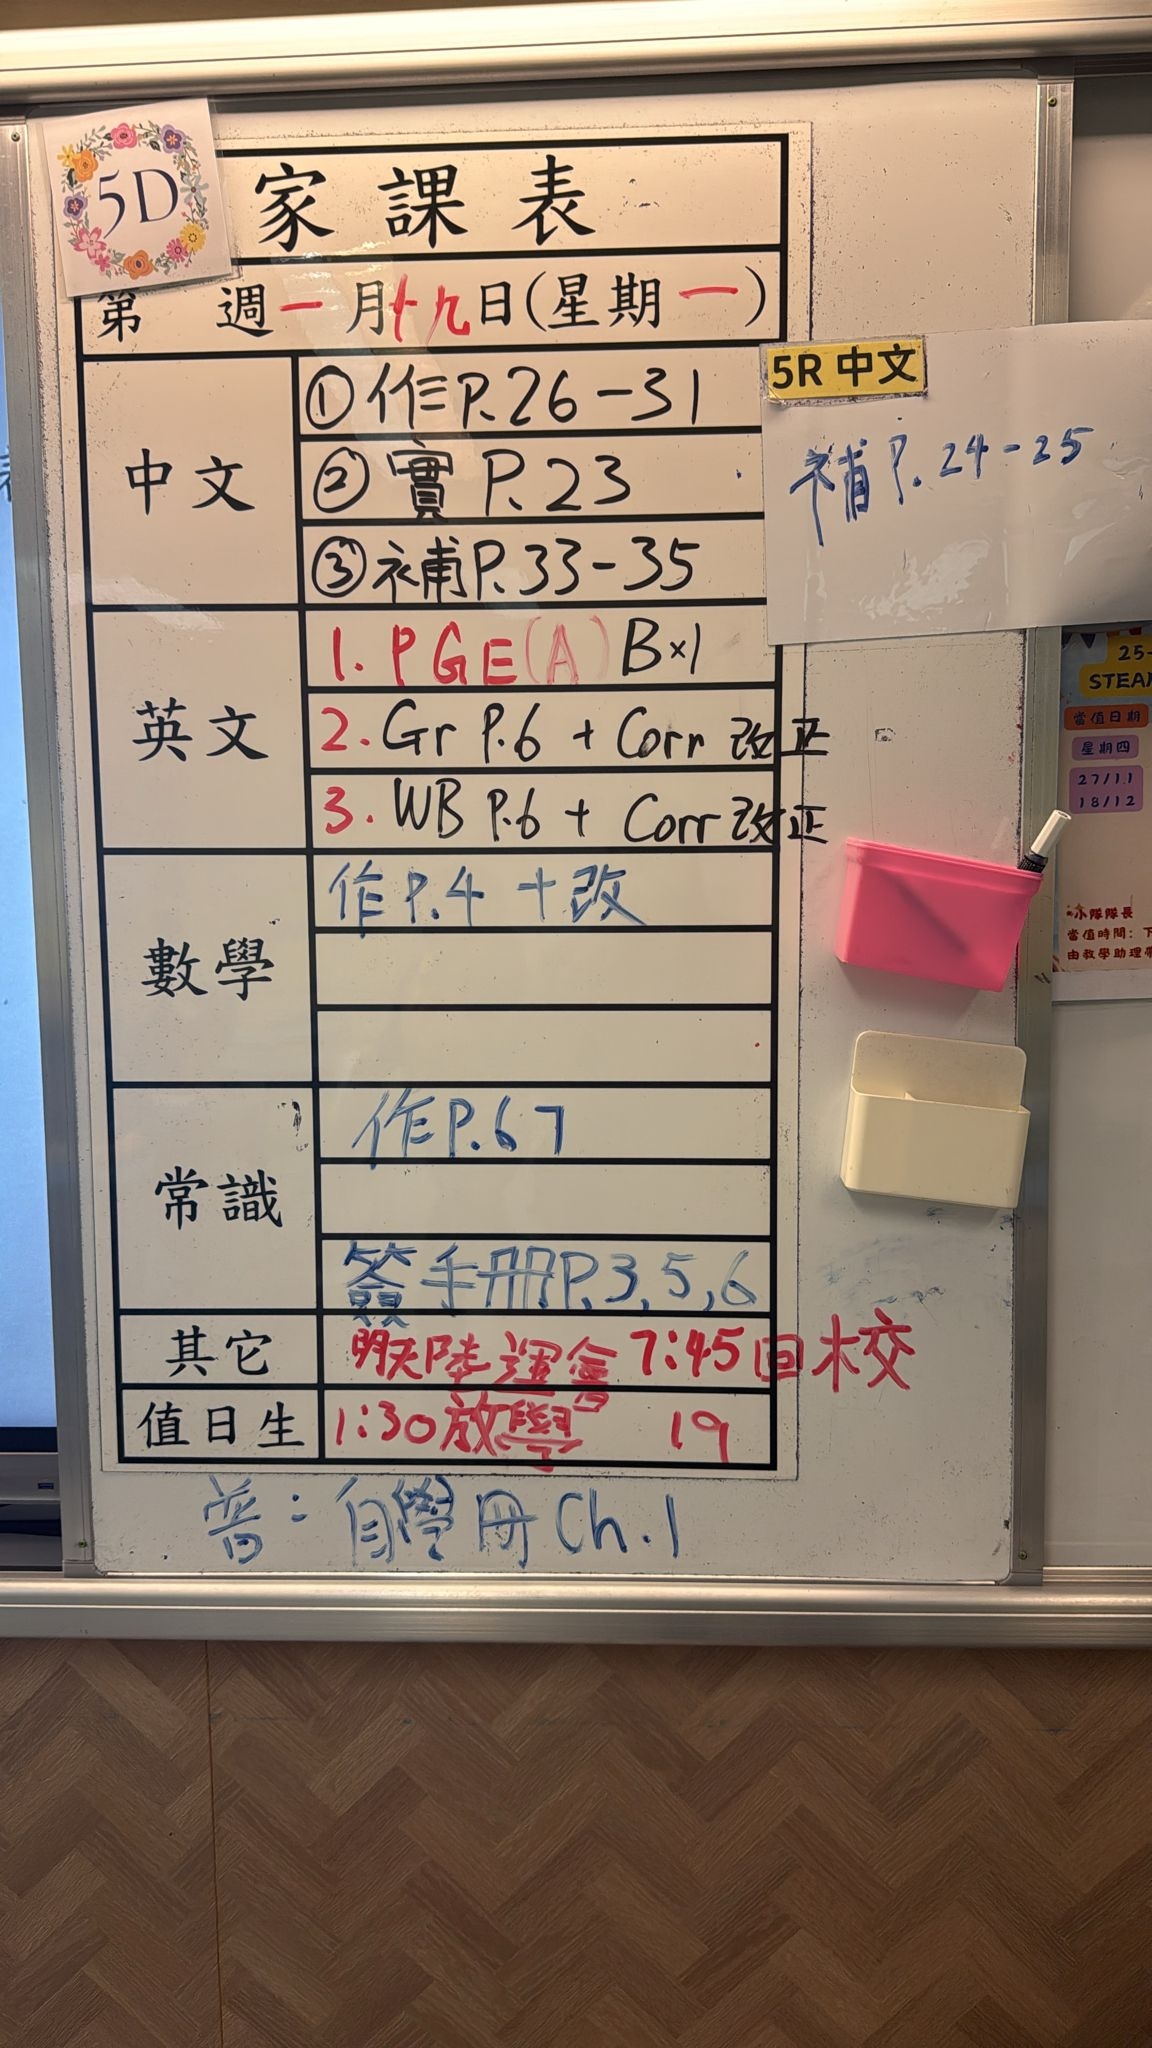 5D
家課表
第 週一月十九日(星期一)
中文
①作P.26-31
②實P.23
③補P.33-35
5R 中文
補P.24-25
英文
1. PGE(A) B×1
2. Gr P.6 + Corr 改正
3. WB P.6 + Corr 改正
數學
作P.4 +改
常識
作P.67
簽手冊P.3,5,6
其它
明天陸運會 7:45回校
值日生
1:30放學 19
普：自學冊Ch.1
25-
STEA
當值日期
星期四
27/11
18/12
小隊隊長
當值時間：下
由教學助理帶